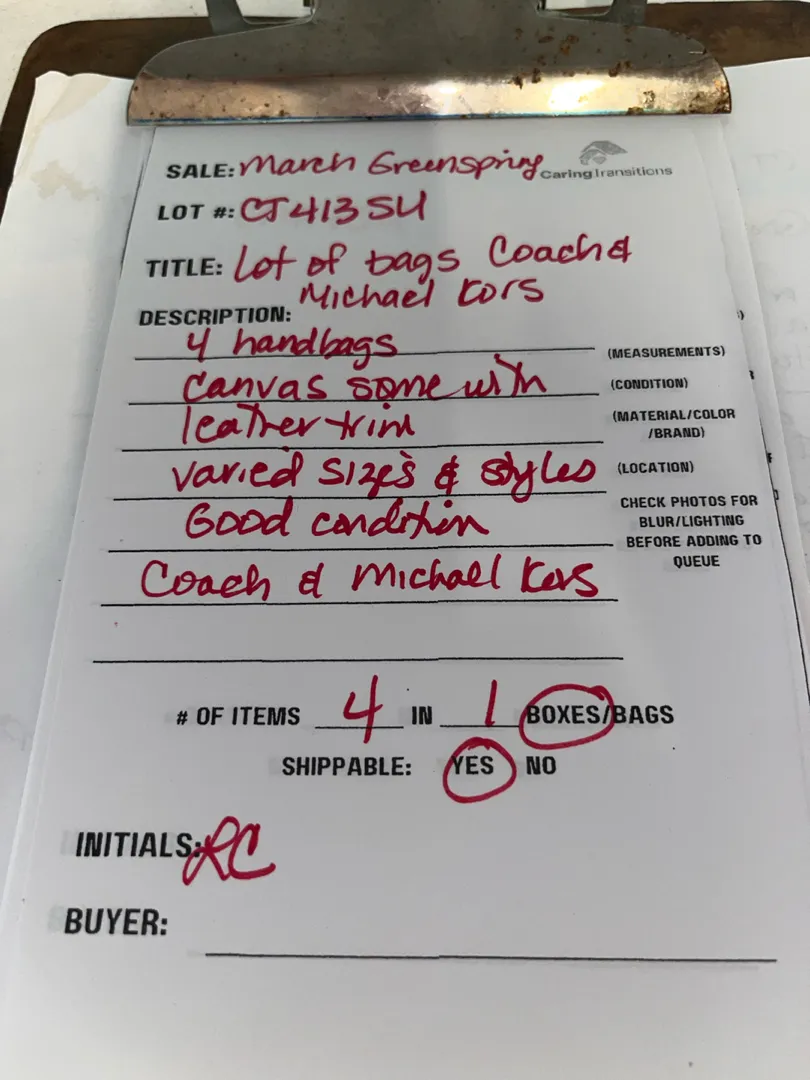 SALE: March Greenspring CaringTransitions
LOT #: CT413SU
TITLE: Lot of bags Coach &
Michael Kors
DESCRIPTION:
4 handbags (MEASUREMENTS)
canvas some with (CONDITION)
leather trim (MATERIAL/COLOR
/BRAND)
varied sizes & styles (LOCATION)
Good condition CHECK PHOTOS FOR
BLUR/LIGHTING
BEFORE ADDING TO
QUEUE
Coach & Michael Kors
# OF ITEMS 4 IN 1 BOXES/BAGS
SHIPPABLE: YES NO
INITIALS: RC
BUYER: